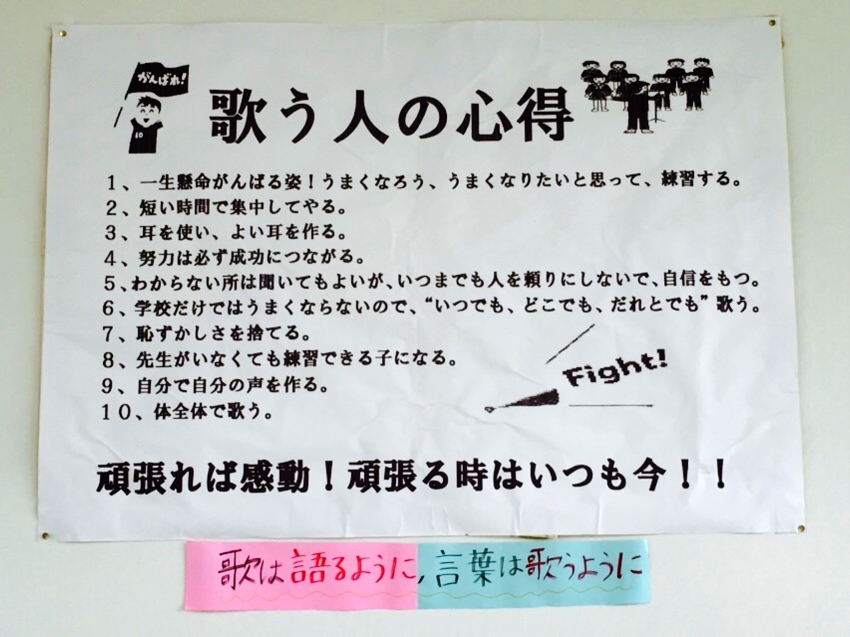 がんばれ!
歌う人の心得
1、一生懸命がんばる姿!うまくなろう、うまくなりたいと思って、練習する。
2、短い時間で集中してやる。
3、耳を使い、よい耳を作る。
4、努力は必ず成功につながる。
5、わからない所は聞いてもよいが、いつまでも人を頼りにしないで、自信をもつ。
6、学校だけではうまくならないので、“いつでも、どこでも、だれとでも”歌う。
7、恥ずかしさを捨てる。
8、先生がいなくても練習できる子になる。
9、自分で自分の声を作る。
10、体全体で歌う。
Fight!
頑張れば感動!頑張る時はいつも今!!
歌は語るように,言葉は歌うように